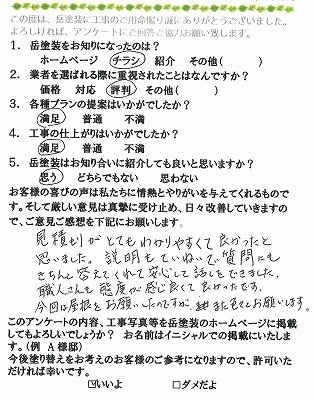 この度は、岳塗装に工事のご用命賜り誠にありがとうございました。
よろしければ、アンケートにご回答ご協力お願い致します。
1. 岳塗装をお知りになったのは?
ホームページ チラシ 紹介 その他( )
2. 業者を選ばれる際に重視されたことはなんですか?
価格 対応 評判 その他( )
3. 各種プランの提案はいかがでしたか?
満足 普通 不満
4. 工事の仕上がりはいかがでしたか?
満足 普通 不満
5. 岳塗装はお知り合いに紹介しても良いと思いますか?
思う どちらでもない 思わない
お客様の喜びの声は私たちに情熱とやりがいを与えてくれるものです。
そして厳しい意見は真摯に受け止め、日々改善していきますので、
ご意見ご感想を下記にお願いします。
見積りがとてもわかりやすくて良かったと
思いました。説明もていねいで質問にも
きちんと答えてくれて安心して話しをできました。
職人さんも態度が感じ良くて良かったです。
今回は屋根をお願いしたのですが、また色々とお願いします。
このアンケートの内容、工事写真等を岳塗装のホームページに掲載
してもよろしいでしょうか? お名前はイニシャルでの掲載にいたしま
す。(例 A 様邸)
今後塗り替えをお考えのお客様のご参考になりますので、許可いた
だければ幸いです。
☑いいよ □ダメだよ